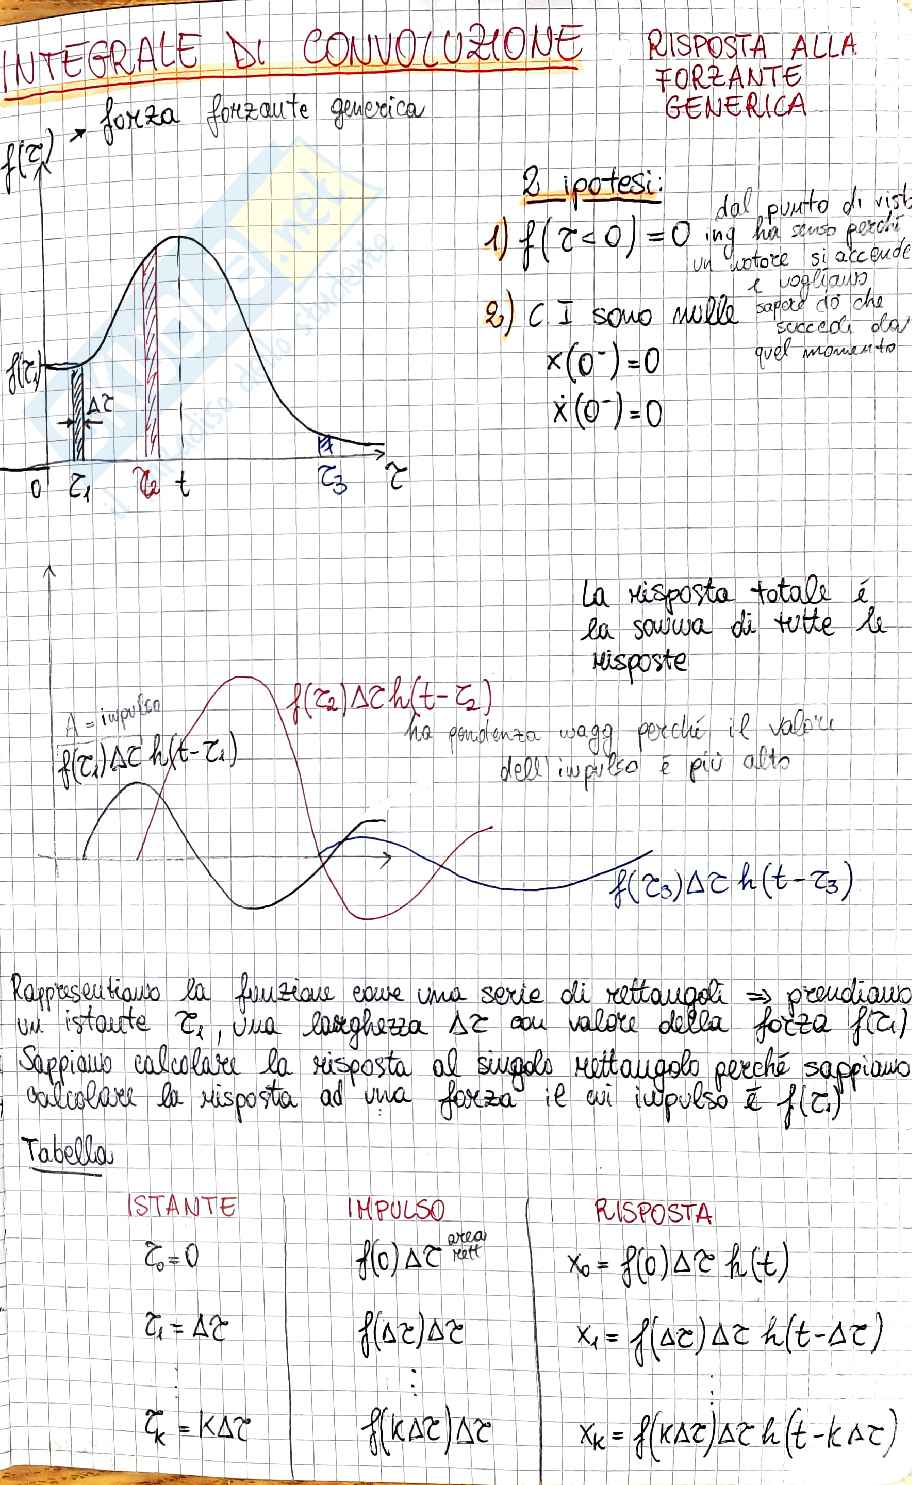 INTEGRALE DI CONVOLUZIONE
RISPOSTA ALLA
FORZANTE
GENERICA
f(τ) → forza forzante generica
2 ipotesi:
1) f(τ<0) = 0
dal punto di vist
ing ha senso perché
un motore si accende
e vogliamo
sapere ciò che
succede da
quel momento
2) C I sono nulle
x(0⁻) = 0
ẋ(0⁻) = 0
f(τ₁)
Δτ
0 τ₁ τ₂ t τ₃ τ
La risposta totale è
la somma di tutte le
risposte
A = impulso
f(τ₁)Δτ h(t-τ₁)
f(τ₂)Δτ h(t-τ₂)
ha pendenza magg perché il valore
dell'impulso è più alto
f(τ₃)Δτ h(t-τ₃)
Rappresentiamo la funzione come una serie di rettangoli ⇒ prendiamo
un istante τ₁, una larghezza Δτ con valore della forza f(τ₁)
Sappiamo calcolare la risposta al singolo rettangolo perché sappiamo
calcolare la risposta ad una forza il cui impulso è f(τ₁)
Tabella
ISTANTE IMPULSO RISPOSTA
τ₀ = 0 f(0)Δτ area rett x₀ = f(0)Δτ h(t)
τ₁ = Δτ f(Δτ)Δτ x₁ = f(Δτ)Δτ h(t-Δτ)
⋮ ⋮ ⋮
τₖ = KΔτ f(KΔτ)Δτ xₖ = f(KΔτ)Δτ h(t-kΔτ)
SKUOLA.net
il paradiso dello studente